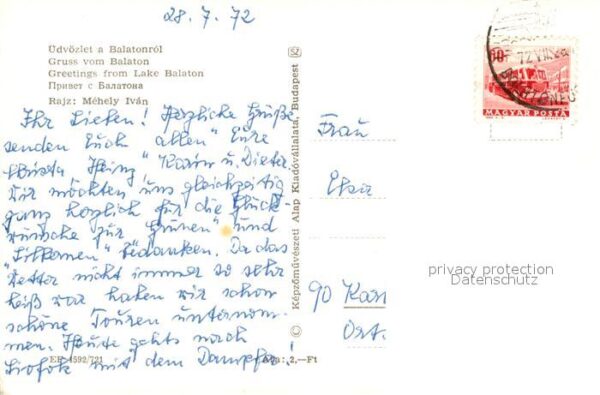 28. 7. 72
Üdvözlet a Balatonról
Gruss vom Balaton
Greetings from Lake Balaton
Привет с Балатона
Rajz: Méhely Iván
Ihr Lieben! Herzliche Grüße
senden Euch allen" Eure
Heinz" Karin u. Dieter.
Wir möchten uns gleichzeitig
ganz herzlich für die Glück-
wünsche zur "Grünen" und
"Silbernen" bedanken. Da das
Wetter nicht immer so sehr
heiß war haben wir schon
schöne Touren unternom-
men. Heute gehts nach
Siofok mit dem Dampfer!
EF 4592/721
Ára: 2,—Ft
© Képzőművészeti Alap Kiadóvállalata, Budapest
Frau
Elsa
90 Karl
Ort.
72 VII.
MAGYAR POSTA
privacy protection
Datenschutz